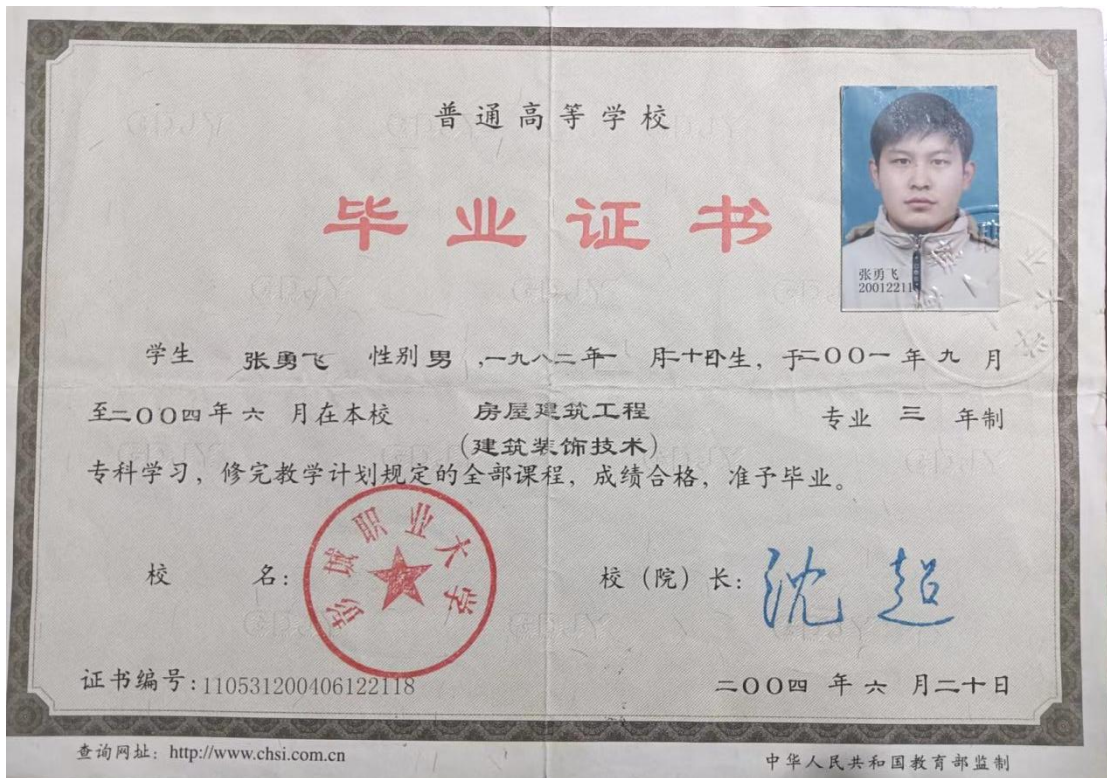 普通高等学校
毕业证书
张勇飞
20012211
学生 张勇飞 性别 男 ,一九八二年一 月二十日生，于二〇〇一 年 九 月
至二〇〇四年 六 月在本校 房屋建筑工程 专业 三 年制
(建筑装饰技术)
专科学习，修完教学计划规定的全部课程，成绩合格，准予毕业。
校 名：
彭城职业大学
校（院）长：沈超
证书编号：110531200406122118
二〇〇四 年 六 月二十日
查询网址：http://www.chsi.com.cn
中华人民共和国教育部监制